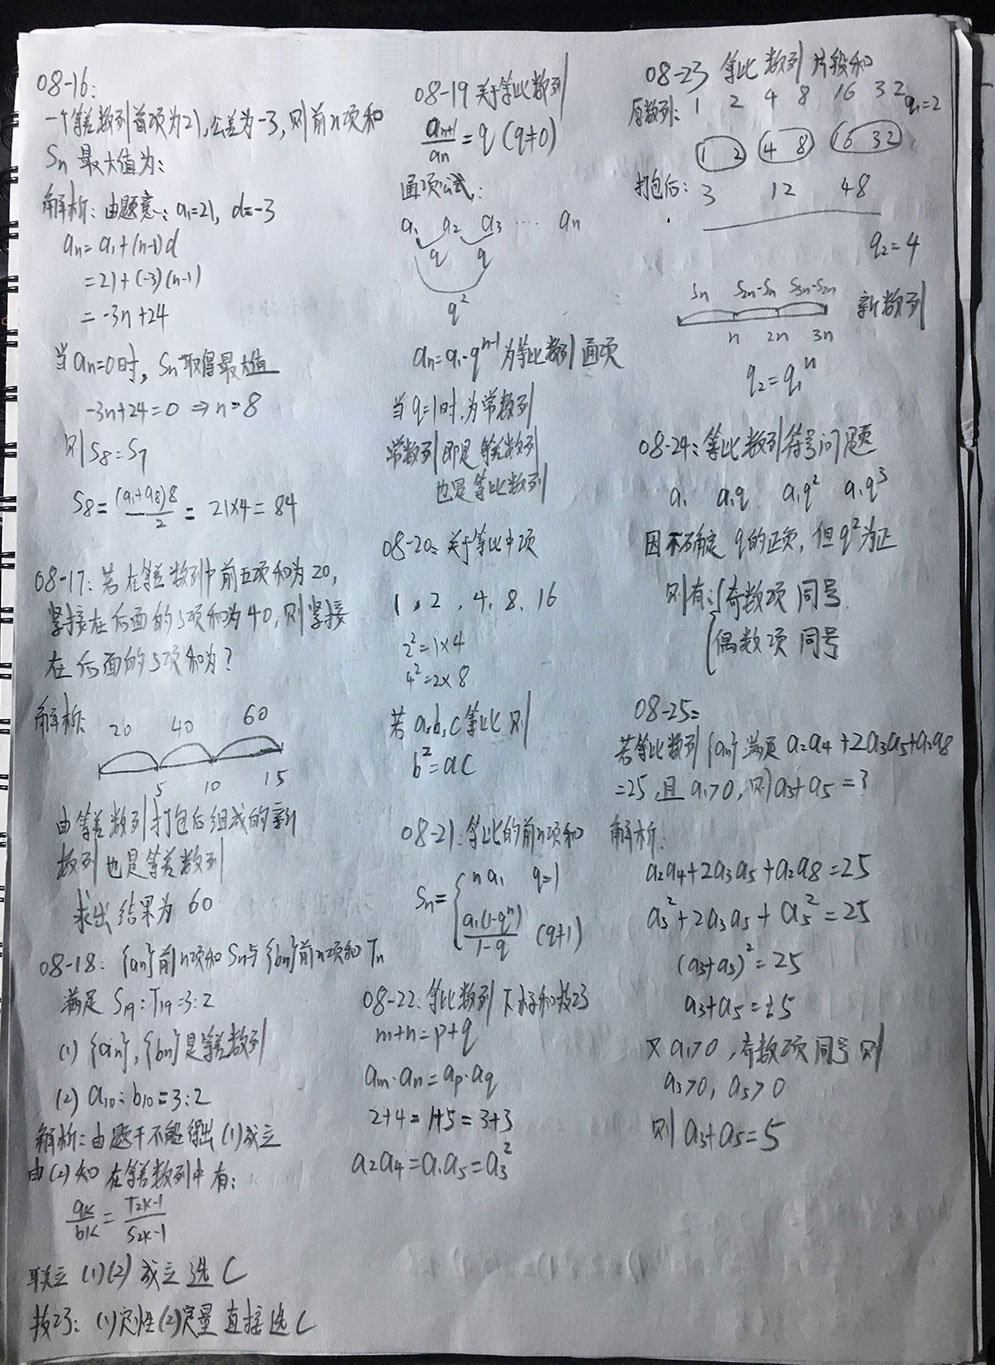 08-16:
一个等差数列首项为21,公差为-3,则前n项和
Sn 最大值为:
解析:由题意:a₁=21, d=-3
an=a₁+(n-1)d
=21+(-3)(n-1)
=-3n+24
当an=0时,Sn取得最大值
-3n+24=0 ⇒n=8
则S8=S7
S8=(a₁+a8)8/2 = 21×4=84
08-17:若在等差数列中前五项和为20,
紧接在后面的5项和为40,则紧接
在后面的5项和为?
解析: 20 40 60
5 10 15
由等差数列打包后组成的新
数列也是等差数列
求出结果为 60
08-18: {an}前n项和Sn与{bn}前n项和Tn
满足 S19:T19=3:2
(1) {an},{bn}是等差数列
(2) a10:b10=3:2
解析:由题干不能得出(1)成立
由(2)知 在等差数列中有:
aK/bK=T2K-1/S2K-1
联立 (1)(2) 成立选C
技巧:(1)定性(2)定量 直接选C
08-19 关于等比数列
an+1/an=q (q≠0)
通项公式:
a₁ a2 a3 ···· an
q q
q²
an=a₁·qⁿ⁻¹为等比数列通项
当q=1时,为常数列
常数列即是等差数列
也是等比数列
08-20:关于等比中项
1 , 2 , 4, 8, 16
2²=1×4
4²=2×8
若a,b,c等比则
b²=ac
08-21:等比的前n项和
Sn={ na₁ q=1
a₁(1-qⁿ)/1-q (q≠1)
08-22:等比数列下标和技巧
m+n=p+q
am·an=ap·aq
2+4=1+5=3+3
a2a4=a₁a5=a3²
08-23 等比数列片段和
原数列: 1 2 4 8 16 32 q₁=2
1 2 4 8 16 32
打包后: 3 12 48
q2=4
Sn S2n-Sn S3n-S2n 新数列
n 2n 3n
q2=q₁ⁿ
08-24:等比数列符号问题
a₁ a₁q a₁q² a₁q³
因不确定 q的正负,但q²为正
则有:{奇数项 同号
偶数项 同号
08-25:
若等比数列{an}满足 a2a4+2a3a5+a2a8
=25,且a₁>0,则a3+a5=?
解析:
a2a4+2a3a5+a2a8=25
a3²+2a3a5+a5²=25
(a3+a3)²=25
a3+a5=±5
又a₁>0,奇数项同号则
a3>0, a5>0
则a3+a5=5